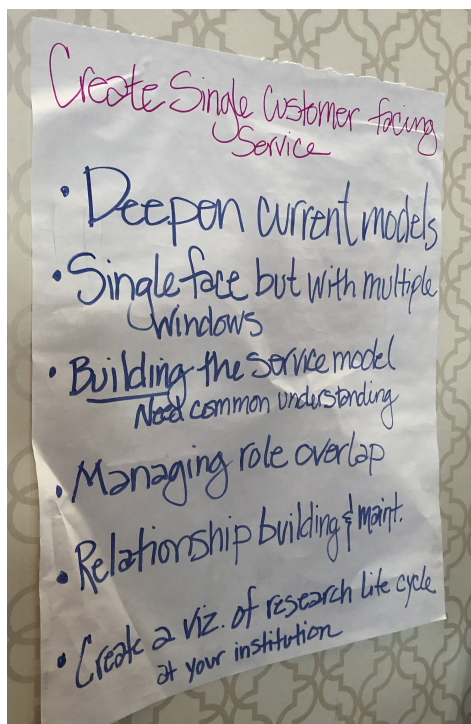 Create Single Customer facing
Service
• Deepen current models
• Single face but with multiple
Windows
• Building the service model
Need common understanding
• Managing role overlap
• Relationship building & maint.
• Create a viz. of research life cycle
at your institution